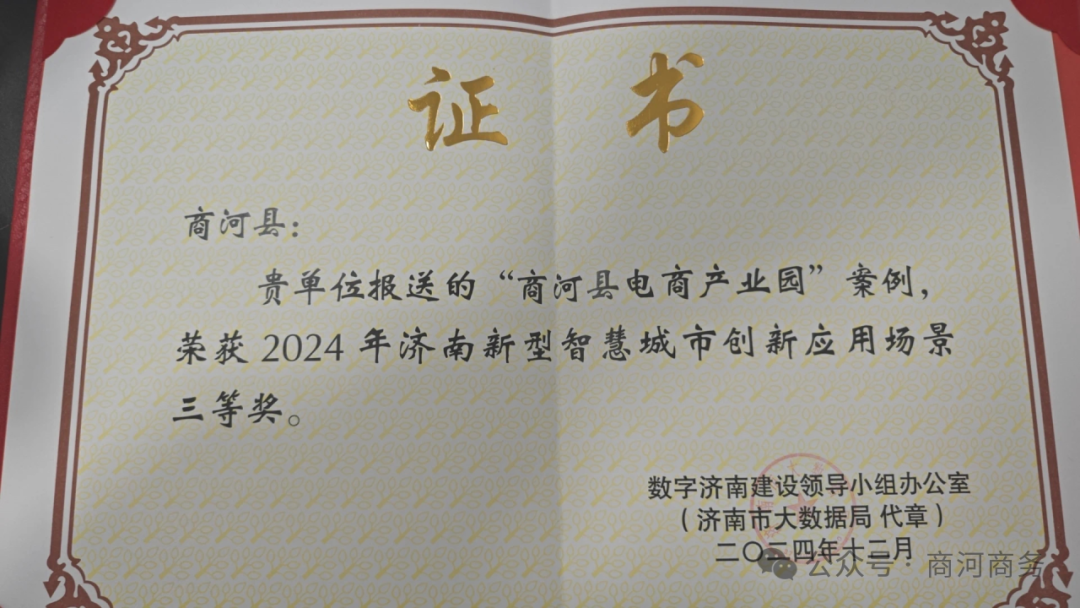 证书
商河县：
贵单位报送的“商河县电商产业园”案例，
荣获 2024 年济南新型智慧城市创新应用场景
三等奖。
数字济南建设领导小组办公室
（济南市大数据局 代章）
二〇二四年十二月
公众号·商河商务